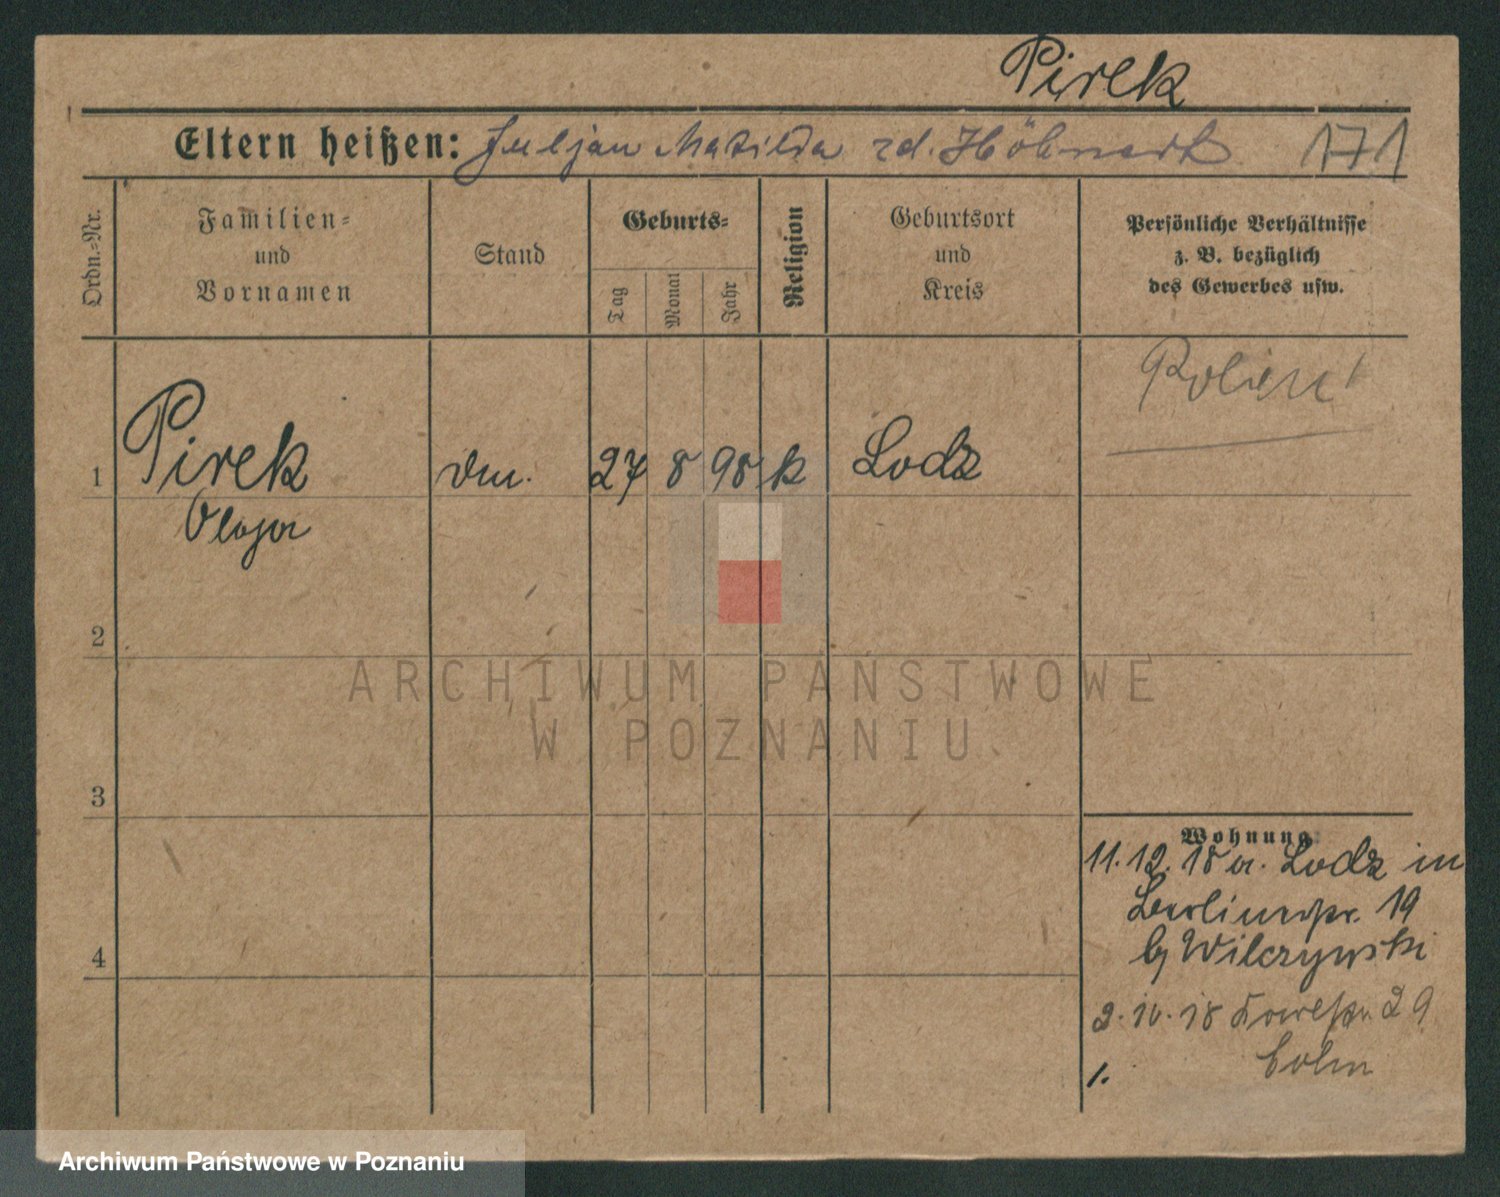 Pirek
Eltern heißen: Juljan Matilda rd. Höhnert 171
Ordn.-Nr.
Familien-
und
Vornamen
Stand
Geburts-
Tag
Monat
Jahr
Religion
Geburtsort
und
Kreis
Persönliche Verhältnisse
z. B. bezüglich
des Gewerbes usw.
1 Pirek 27 8 98 k Lodz
2
3
4
Wohnung
11.12.18 a. Lodz in
Berlinerstr. 19
b/ Wilczynski
2. 10. 18 29
Cohn
1.
ARCHIWUM PAŃSTWOWE
W POZNANIU
Archiwum Państwowe w Poznaniu